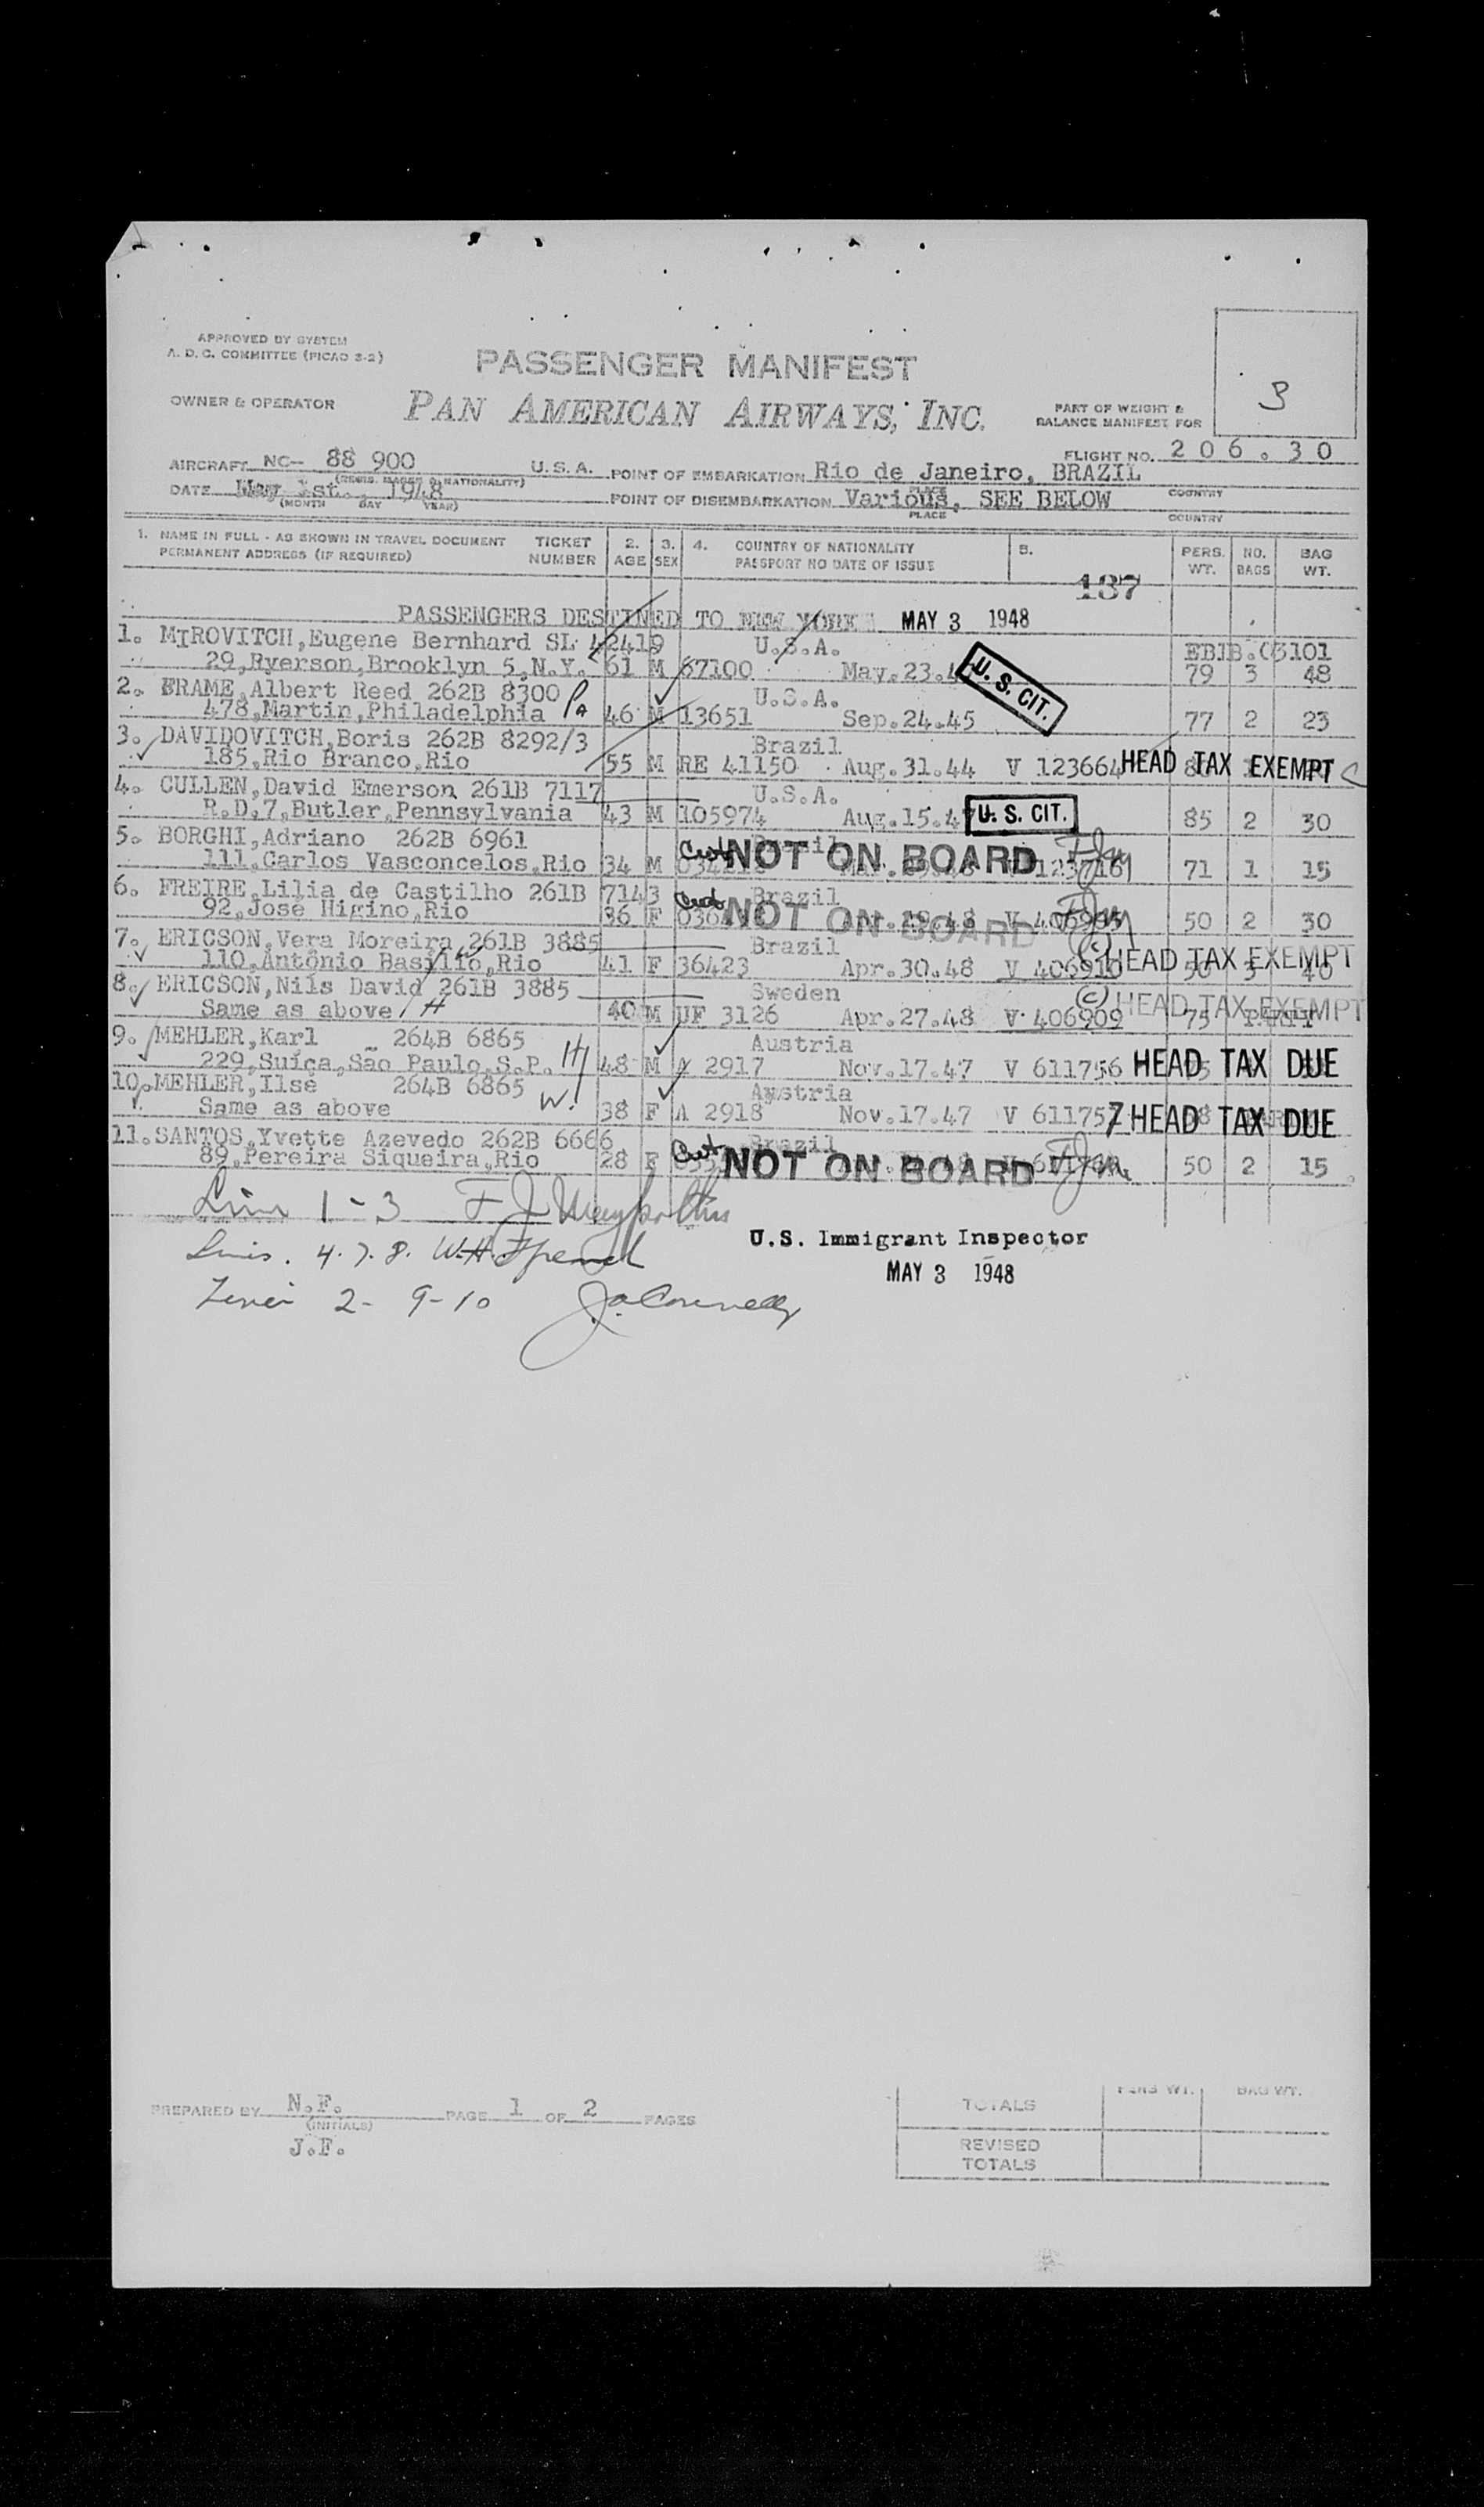 APPROVED BY SYSTEM
A. D. C. COMMITTEE (PICAO 3-2)
PASSENGER MANIFEST
3
OWNER & OPERATOR
PAN AMERICAN AIRWAYS, INC.
PART OF WEIGHT &
BALANCE MANIFEST FOR
FLIGHT NO. 206.30
AIRCRAFT NC- 88 900 U.S.A. POINT OF EMBARKATION Rio de Janeiro, BRAZIL
(REGIS. MARKS & NATIONALITY) PLACE COUNTRY
DATE May 1st., 1948 POINT OF DISEMBARKATION Various, SEE BELOW
(MONTH DAY YEAR) PLACE COUNTRY
1. NAME IN FULL - AS SHOWN IN TRAVEL DOCUMENT TICKET 2. 3. 4. COUNTRY OF NATIONALITY 5. PERS. NO. BAG
PERMANENT ADDRESS (IF REQUIRED) NUMBER AGE SEX PASSPORT NO DATE OF ISSUE WT. BAGS WT.
137
PASSENGERS DESTINED TO NEW YORK MAY 3 1948
1. MIROVITCH,Eugene Bernhard SL 42419 U.S.A. EBIB.03101
29,Ryerson,Brooklyn 5,N.Y. 61 M 67100 May.23. U. S. CIT. 79 3 48
2. FRAME,Albert Reed 262B 8300 Pa U.S.A.
478,Martin,Philadelphia 46 M 13651 Sep.24.45 77 2 23
3. DAVIDOVITCH,Boris 262B 8292/3 Brazil
185,Rio Branco,Rio 55 M RE 41150 Aug.31.44 V 123664 HEAD TAX EXEMPT C
4. CULLEN,David Emerson 261B 7117 U.S.A.
R.D,7,Butler,Pennsylvania 43 M 105974 Aug.15.47 U. S. CIT. 85 2 30
5. BORGHI,Adriano 262B 6961 Brazil
111,Carlos Vasconcelos,Rio 34 M NOT ON BOARD 71 1 15
6. FREIRE,Lilia de Castilho 261B 7143 Brazil
92,José Higino,Rio 36 F NOT ON BOARD Apr.29.48 V 406985 50 2 30
7. ERICSON,Vera Moreira 261B 3885 Brazil
110,Antônio Basílio,Rio 41 F 36423 Apr.30.48 V 406910 (C) HEAD TAX EXEMPT 50 3 40
8. ERICSON,Nils David 261B 3885 Sweden
Same as above H 40 M UF 3126 Apr.27.48 V 406909 (C) HEAD TAX EXEMPT 75
9. MEHLER,Karl 264B 6865 Austria
229,Suíça,São Paulo,S.P. H 48 M A 2917 Nov.17.47 V 611756 HEAD TAX DUE
10. MEHLER,Ilse 264B 6865 W! Austria
Same as above 38 F A 2918 Nov.17.47 V 611757 HEAD TAX DUE
11. SANTOS,Yvette Azevedo 262B 6666 Brazil
89,Pereira Siqueira,Rio 28 F NOT ON BOARD 50 2 15
1-3
U.S. Immigrant Inspector
4.7.8.
MAY 3 1948
2- 9-10
PREPARED BY N.F. PAGE 1 OF 2 PAGES
(INITIALS)
J.F.
PERS WT. BAG WT.
TOTALS
REVISED
TOTALS